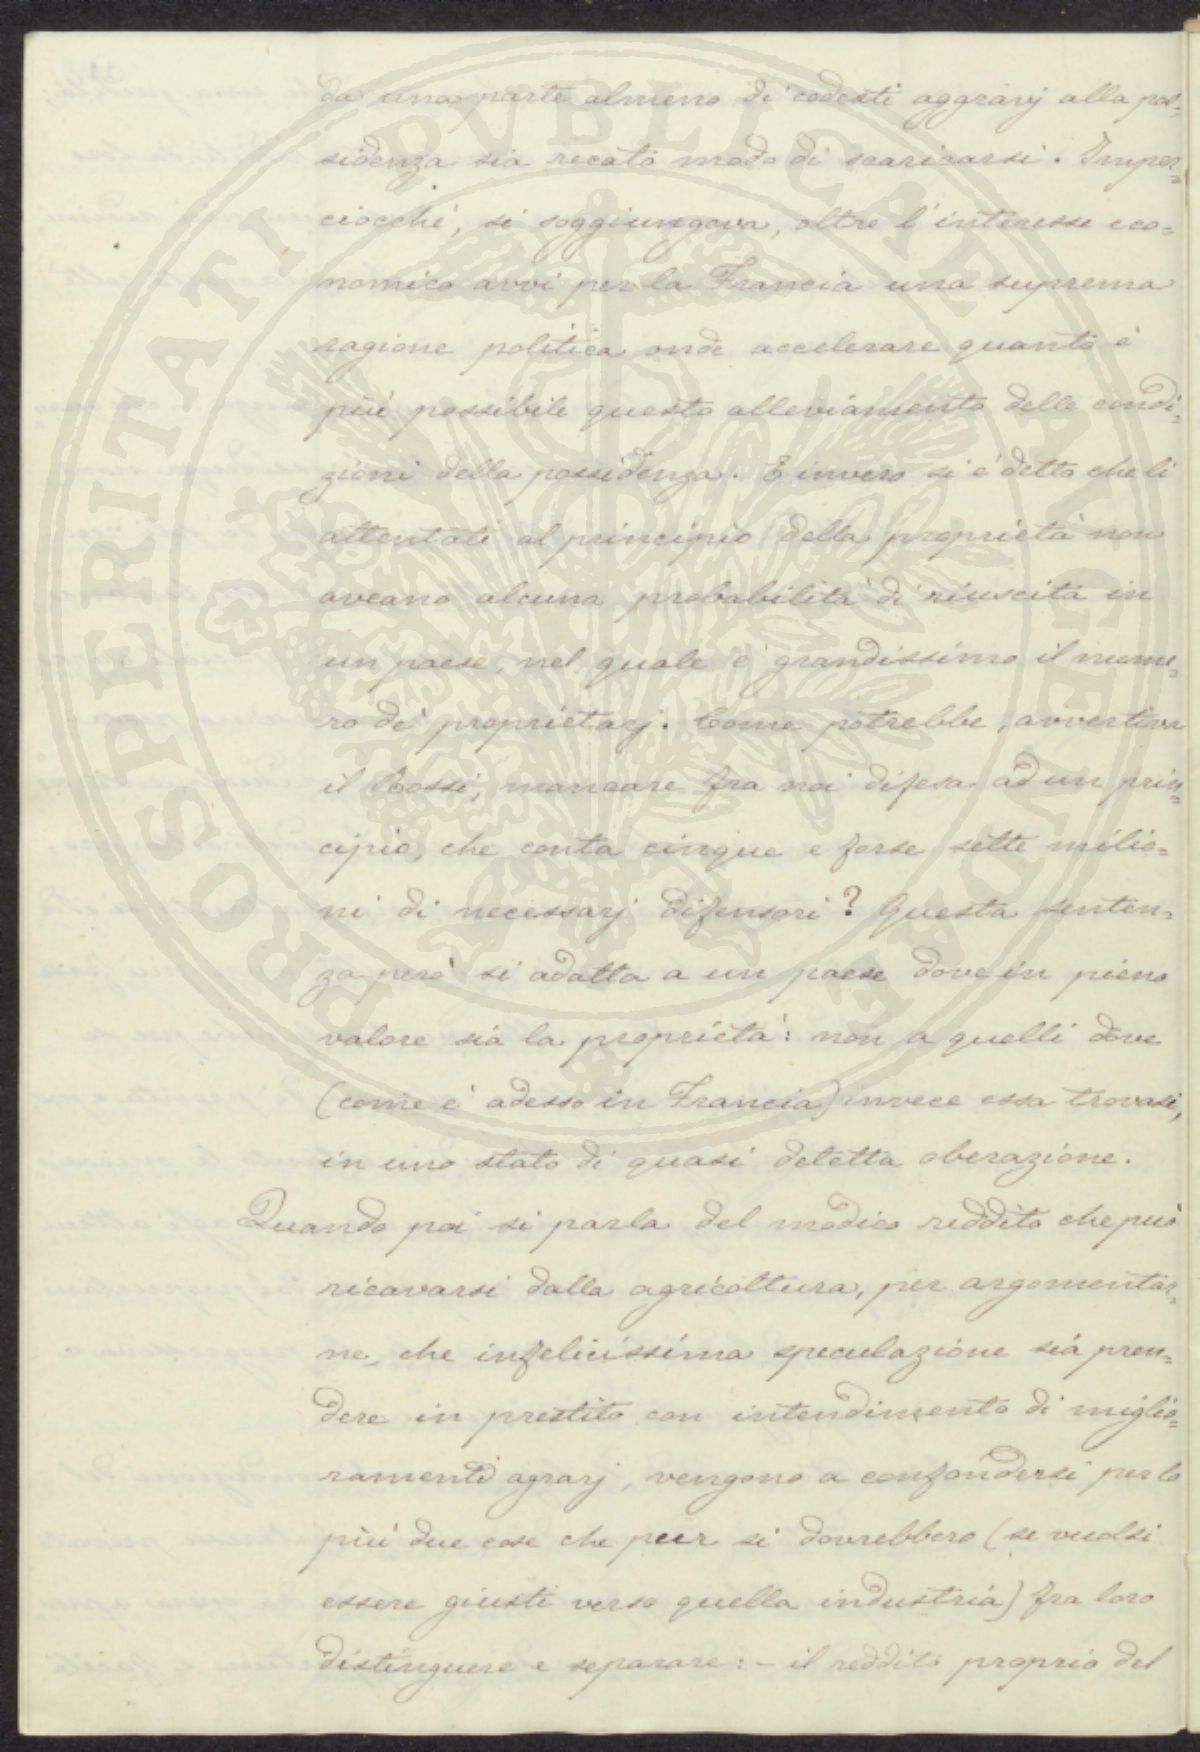 da una parte almeno di codesti aggravj alla pos=
sidenza sia recato modo di scaricarsi. Imper=
ciocchè, si soggiungeva, oltre l'interesse eco=
nomico avvi per la Francia una suprema
ragione politica onde accelerare quanto è
più possibile questo alleviamento delle condi=
zioni della possidenza. E invero si è detto che li
attentati al principio della proprietà non
aveano alcuna probabilità di riuscita in
un paese, nel quale è grandissimo il nume=
ro dei proprietarj. Come potrebbe, avvertiva
il Rossi, mancare fra noi difesa ad un prin=
cipio, che conta cinque e forse sette milio=
ni di necessarj difensori? Questa senten=
za però si adatta a un paese dove in pieno
valore sia la proprietà: non a quelli dove
(come è adesso in Francia) invece essa trovasi,
in uno stato di quasi detetta oberazione.
Quando poi si parla del modico reddito che può
ricavarsi dalla agricoltura, per argomentar=
ne, che infelicissima speculazione sia pren=
dere in prestito con intendimento di miglio=
ramenti agrarj, vengono a confondersi per lo
più due cose che pur si dovrebbero (se vuolsi
essere giusti verso quella industria) fra loro
distinguere e separare: - il reddito proprio del
PROSPERITATI PVBLICAE AVGENDAE